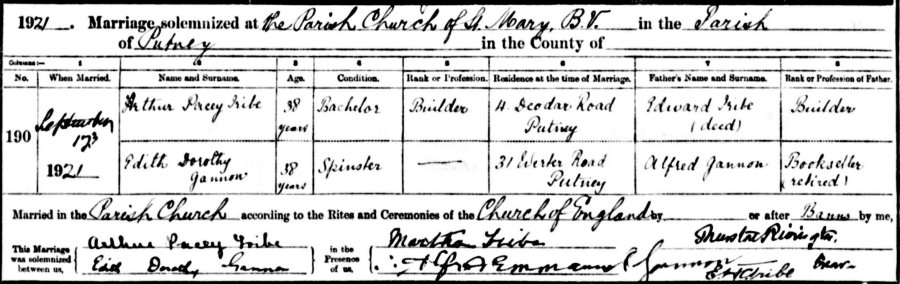 1921. Marriage solemnized at the Parish Church of St. Mary, B.V. in the Parish
of Putney in the County of
Columns:— 1 2 3 4 5 6 7 8
No. When Married. Name and Surname. Age. Condition. Rank or Profession. Residence at the time of Marriage. Father's Name and Surname. Rank or Profession of Father.
190 September 17th 1921 Arthur Pacey Tribe 38 years Bachelor Builder 4 Deodar Road Putney Edward Tribe (decd) Builder
Edith Dorothy Gannon 38 years Spinster — 31 Werter Road Putney Alfred Gannon Bookseller (retired)
Married in the Parish Church according to the Rites and Ceremonies of the Church of England by or after Banns by me,
This Marriage was solemnized between us, Arthur Pacey Tribe
Edith Dorothy Gannon
in the Presence of us, Martha Tribe
Alfred Emmanuel Gannon
E Tribe